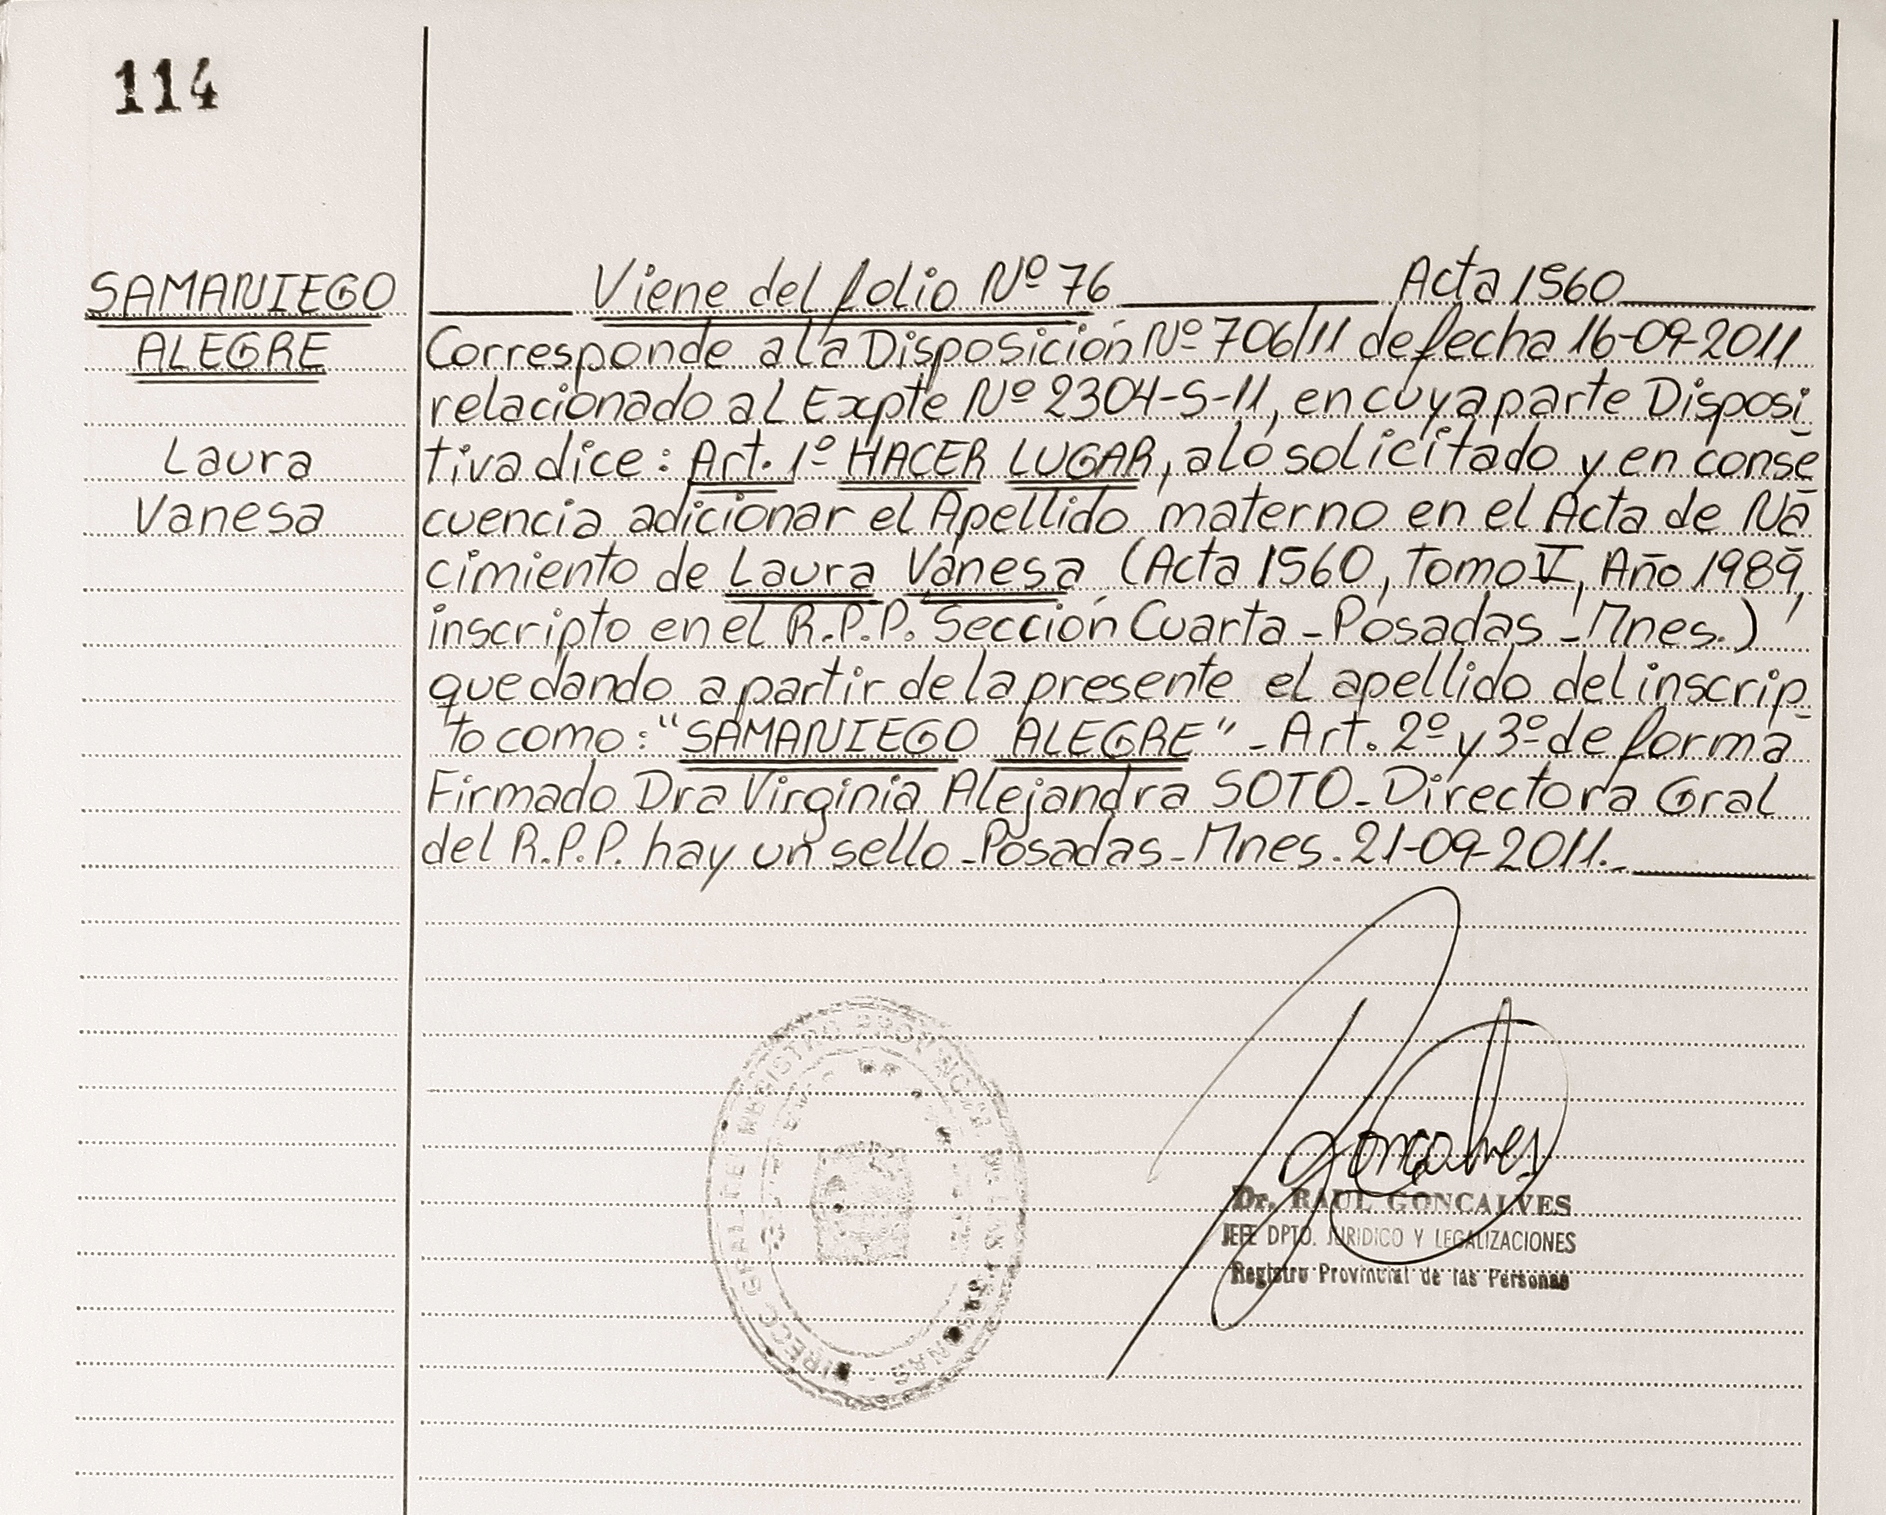 114
SAMANIEGO
ALEGRE
Laura
Vanesa
Viene del folio Nº 76 Acta 1560
Corresponde a la Disposición Nº 706/11 de fecha 16-09-2011
relacionado al Expte Nº 2304-S-11, en cuya parte Disposi
tiva dice: Art. 1º HACER LUGAR, a lo solicitado y en conse
cuencia adicionar el Apellido materno en el Acta de Na
cimiento de Laura Vanesa (Acta 1560, Tomo V, Año 1989,
inscripto en el R.P.P. Sección Cuarta - Posadas - Mnes.)
quedando a partir de la presente el apellido del inscrip-
to como: "SAMANIEGO ALEGRE" - Art. 2º y 3º de forma
Firmado Dra Virginia Alejandra SOTO - Directora Gral
del R.P.P. hay un sello - Posadas - Mnes. 21-09-2011.-
DIRECC. GRAL. DE REGISTRO PROVINCIAL DE LAS PERSONAS
Goncalves
Dr. RAUL GONCALVES
JEFE DPTO. JURIDICO Y LEGALIZACIONES
Registro Provincial de las Personas